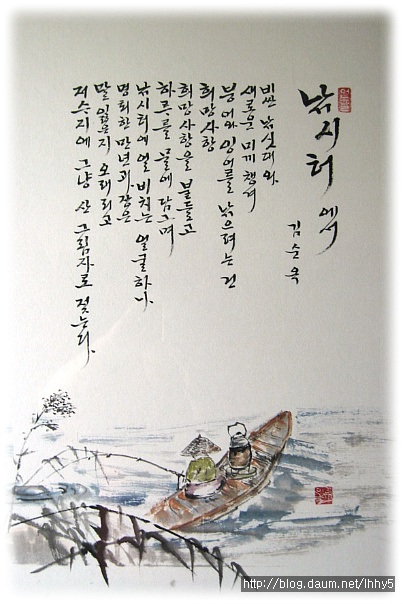 낚시터에서
김순옥
비싼 낚싯대와
새로운 미끼 챙겨
붕어와 잉어를 낚으려는 건
희망사항
희망사항을 붙들고
하루를 물에 담그며
낚시터에 얼비치는 얼굴 하나
명퇴한 만년과장은
말 잃은지 오래되고
저수지에 그냥 산그림자로 젖는다.
http://blog.daum.net/lhhy5